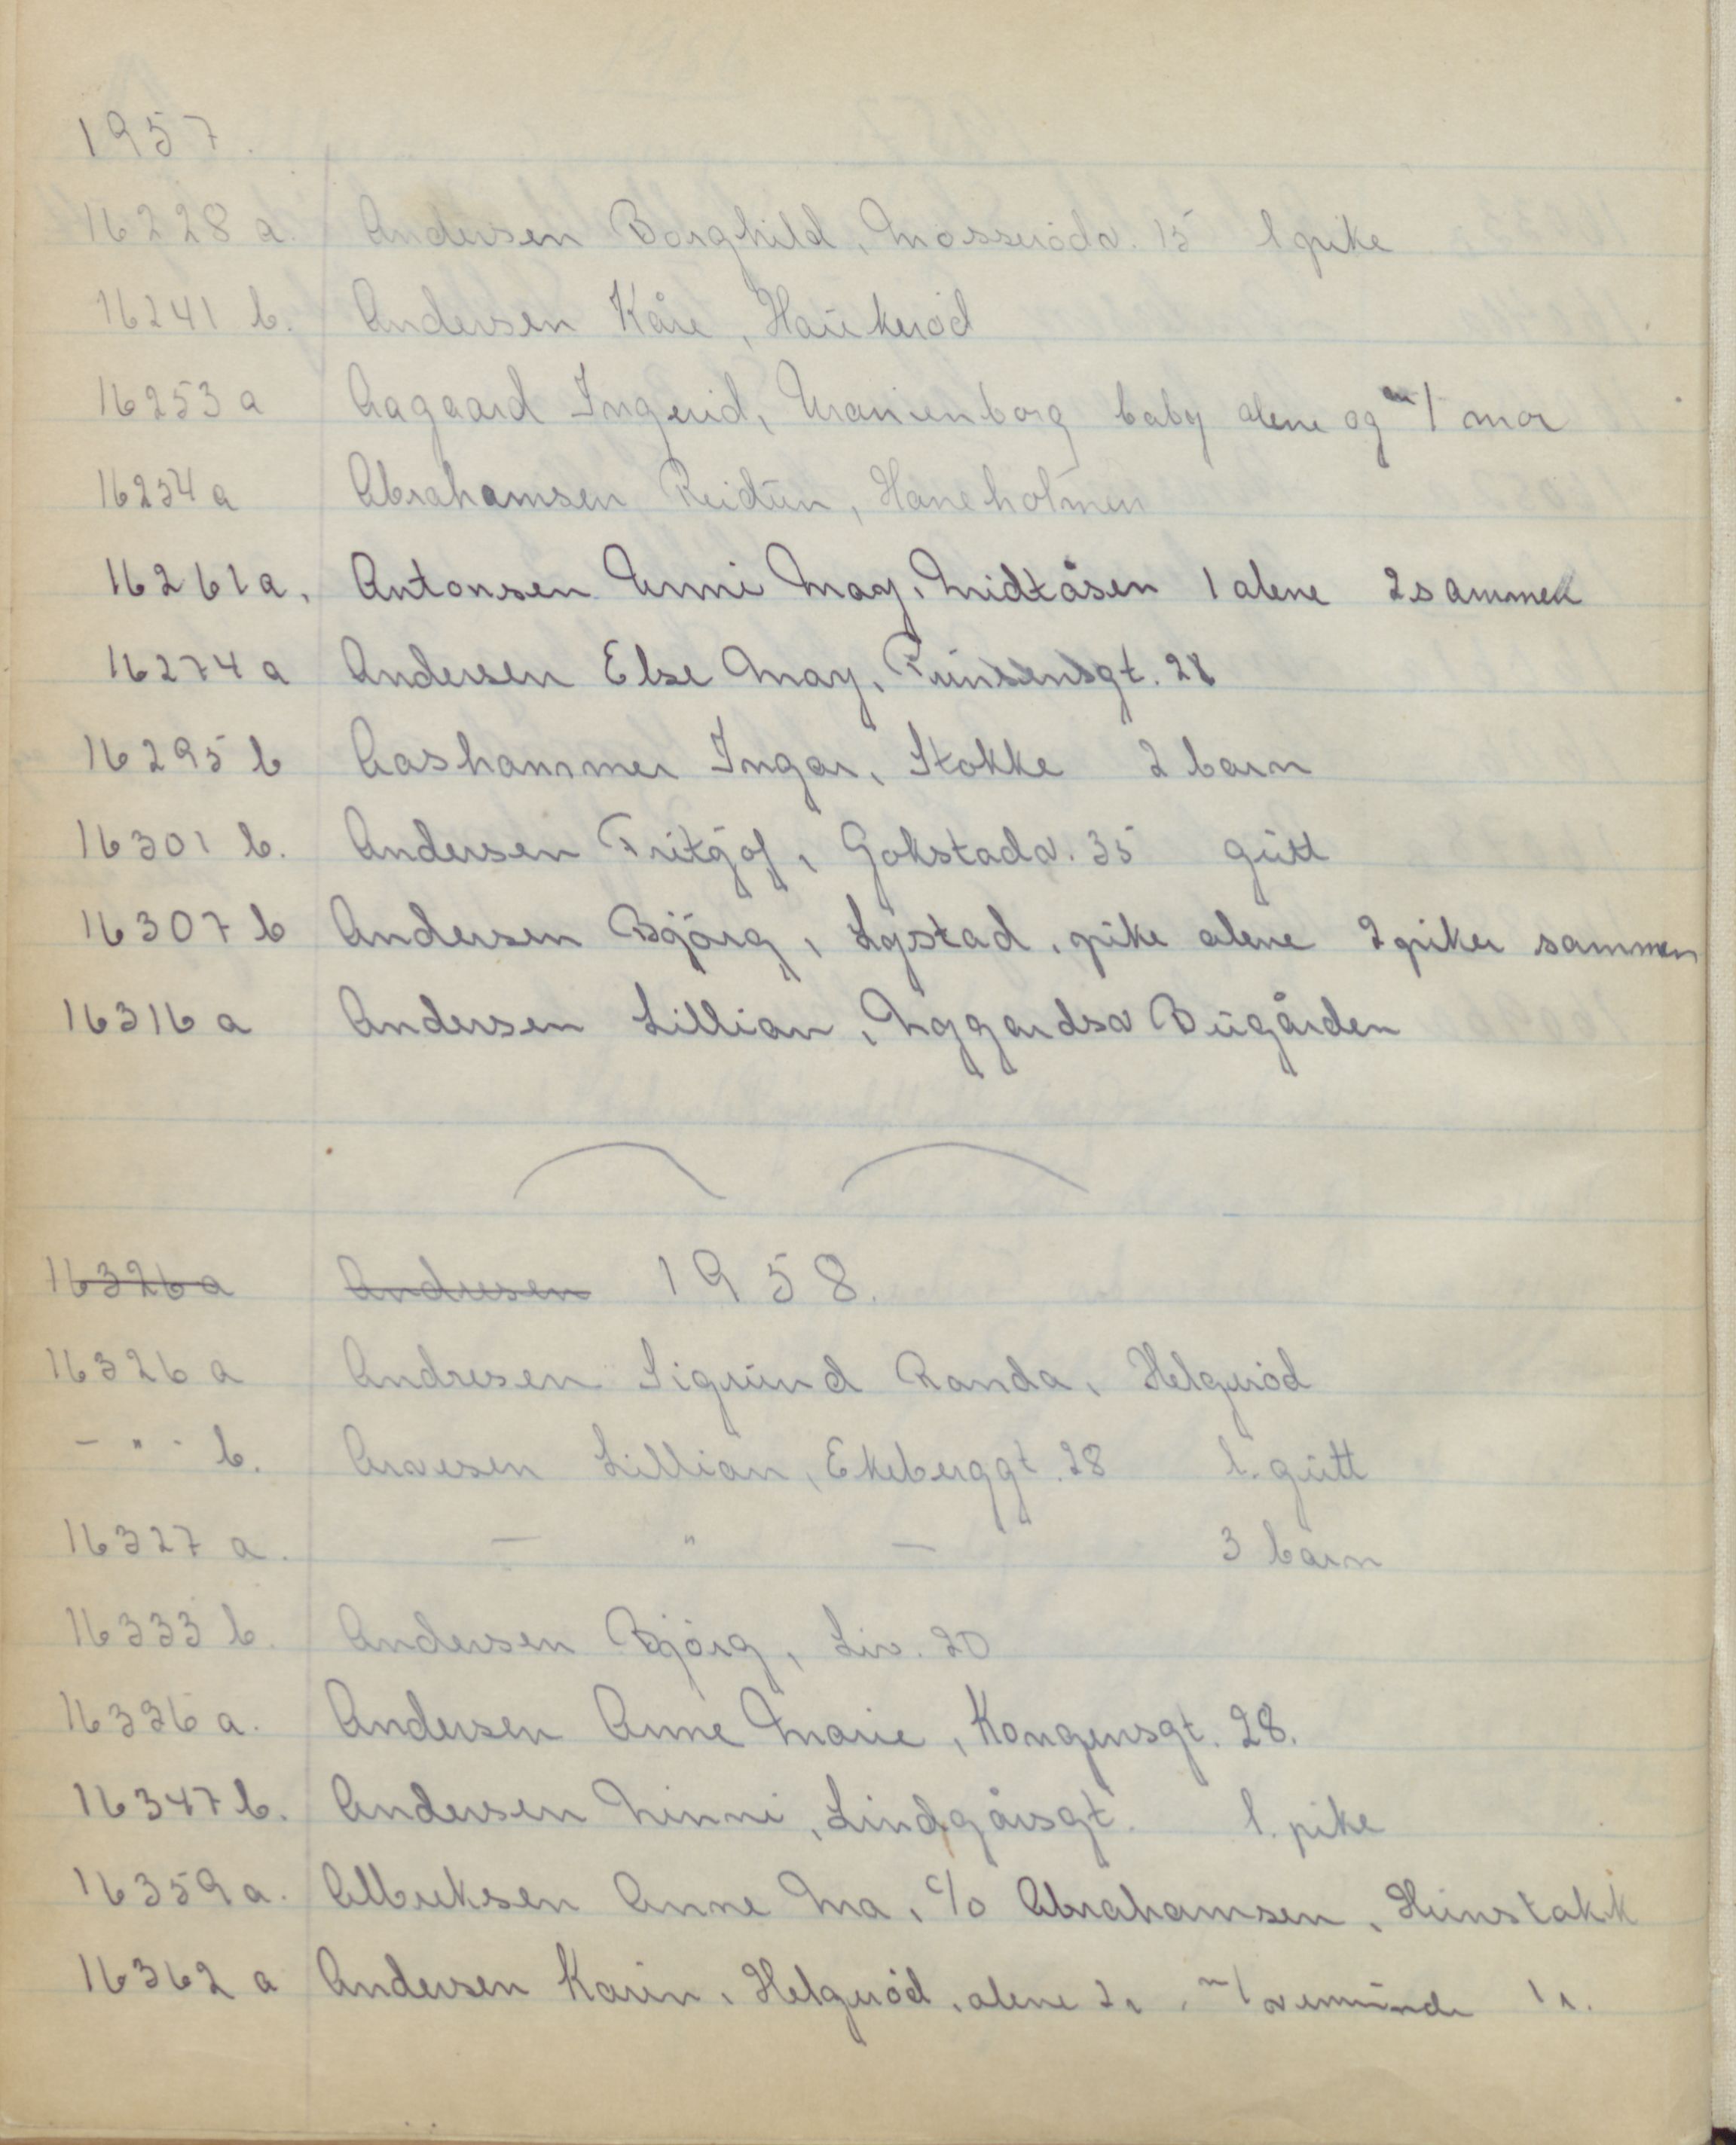 1957.
16228 a. Andersen Borghild, Mosserödv. 15 1 pike
16241 b. Andersen Kåre, Haukeröd
16253 a Aagaard Ingerid, Uranienborg baby alene og m/ mor
16254 a Abrahamsen Reidun, Haneholmen
16261 a. Antonsen Unni May, Midtåsen 1 alene 2 sammen
16274 a Andersen Else May, Prinsensgt. 28
16295 b Aashammer Ingar, Stokke 2 barn
16301 b. Andersen Fritjof, Gokstadv. 35 gutt
16307 b Andersen Björg, Lystad, pike alene 2 piker sammen
16316 a Andersen Lillian, Nygardsv Bugården
16326 a Andresen 1958.
16326 a Andresen Sigrund Randa, Helgeröd
- " - b. Arvesen Lillian, Ekeberggt. 28 1. gutt
16327 a. - " - 3 barn
16333 b. Andersen Björg, Liv. 20
16336 a. Andersen Anne Marie, Kongensgt. 28.
16347 b. Andersen Minni, Lindgårsgt. 1. pike
16359 a. Albreksen Anne Ma, c/o Abrahamsen, Hunstakk
16362 a Andersen Karin, Helgeröd, alene 2, m/ 1